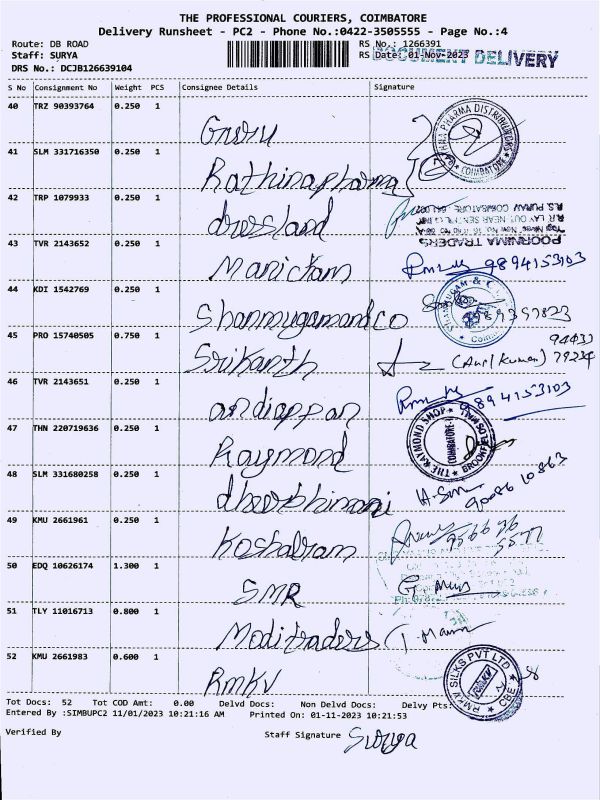 THE PROFESSIONAL COURIERS, COIMBATORE
Delivery Runsheet - PC2 - Phone No.:0422-3505555 - Page No.:4
Route: DB ROAD RS No.: 1266391
Staff: SURYA RS Date: 01-Nov-2023 DOCUMENT DELIVERY
DRS No.: DCJB126639104
S No Consignment No Weight PCS Consignee Details Signature
40 TRZ 90393764 0.250 1 Guru
41 SLM 331716350 0.250 1 Rathinapharma
42 TRP 1079933 0.250 1 dressland
POORNIMA TRADERS
43 TVR 2143652 0.250 1 Manickam 9894153103
44 KDI 1542769 0.250 1 Shanmugamandco
45 PRO 15740505 0.750 1 Srikanth
46 TVR 2143651 0.250 1 andiappan 9894153103
47 THN 220719636 0.250 1 Raymond THE RAYMOND SHOP COIMBATORE
48 SLM 331680258 0.250 1
49 KMU 2661961 0.250 1 Koshalram
50 EDQ 10626174 1.300 1 SMR
51 TLY 11016713 0.800 1 Moditraders
52 KMU 2661983 0.600 1 RMKV RMKV SILKS PVT LTD CBE
Tot Docs: 52 Tot COD Amt: 0.00 Delvd Docs: Non Delvd Docs: Delvy Pts:
Entered By :SIMBUPC2 11/01/2023 10:21:16 AM Printed On: 01-11-2023 10:21:53
Verified By Staff Signature Surya